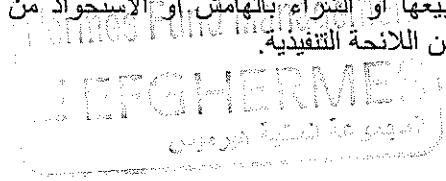 بيعها أو الشراء بالهامش أو الاستحواذ من
ن اللائحة التنفيذية.
EFGHERMES
المجموعة المالية هيرميس